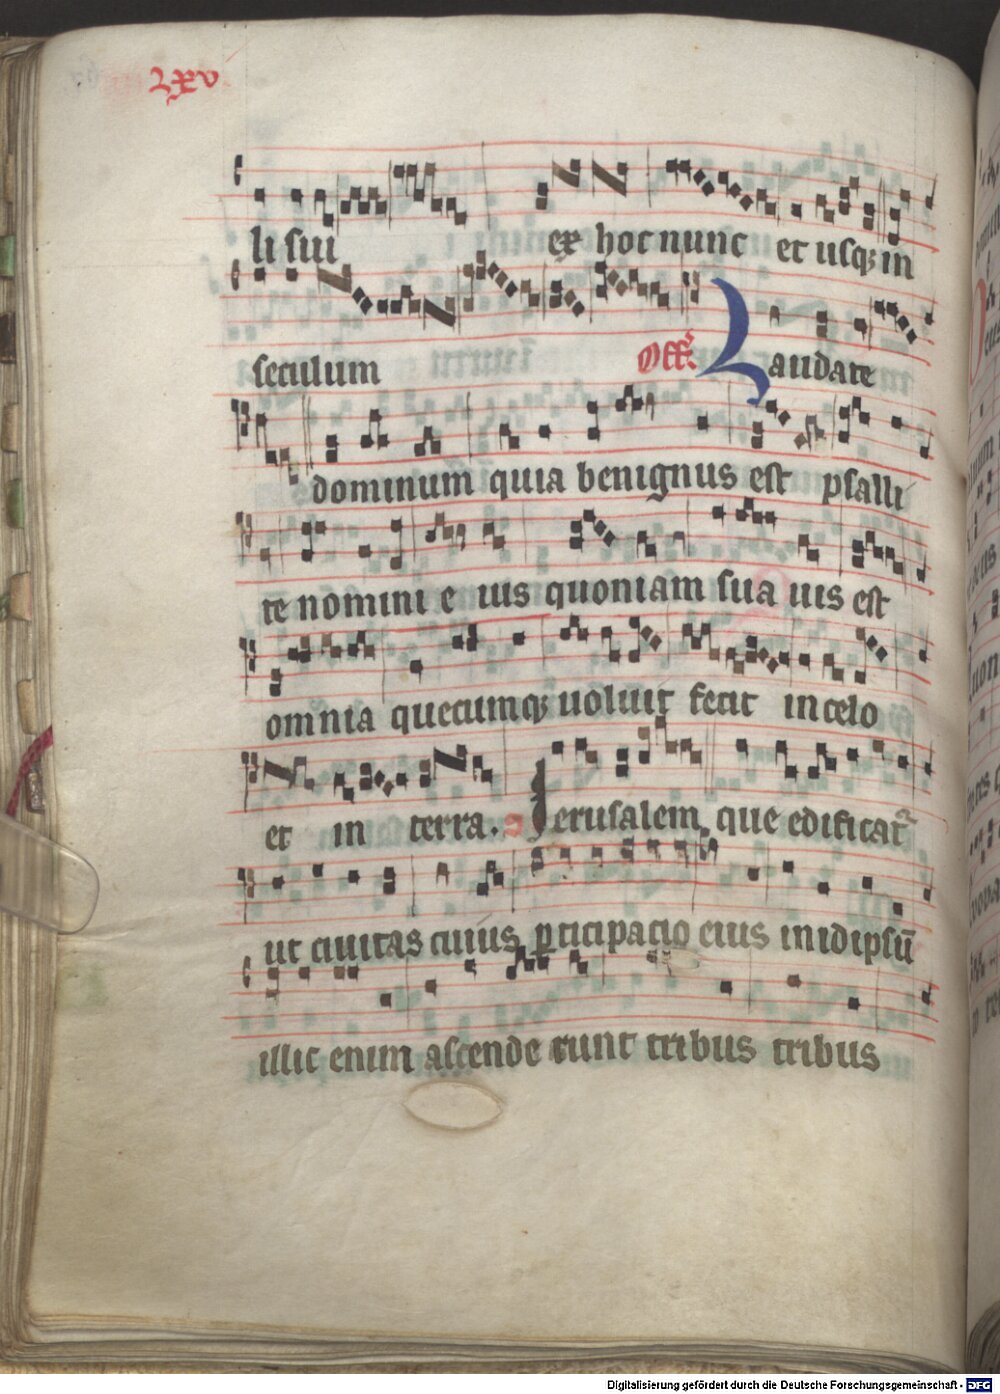 lxv
li sui ex hoc nunc et usqꝫ in
seculum Off. Laudate
dominum quia benignus est psalli
te nomini e ius quoniam sua uis est
omnia quecumqꝫ uoluit fecit in celo
et in terra. Jerusalem que edificat᷑
ut ciuitas cuius ꝑticipacio eius in idipsū
illic enim ascende runt tribus tribus
Digitalisierung gefördert durch die Deutsche Forschungsgemeinschaft - DFG